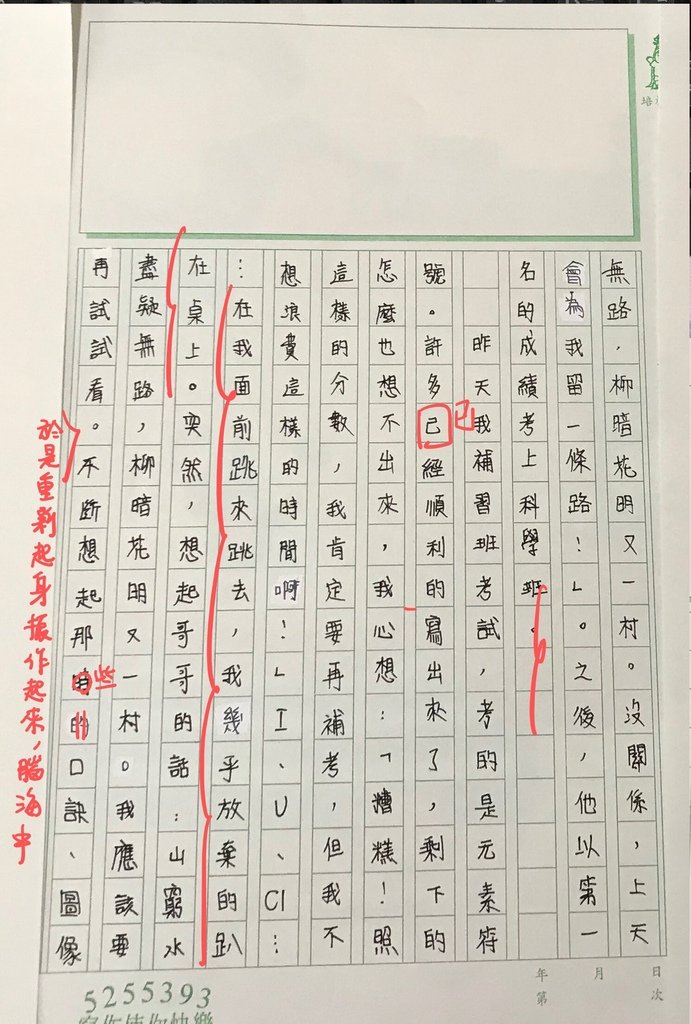 培
無路，柳暗花明又一村。沒關係，上天
會為我留一條路！」。之後，他以第一
名的成績考上科學班。
昨天我補習班考試，考的是元素符
號。許多己經順利的寫出來了，剩下的
已
怎麼也想不出來，我心想：「糟糕！照
這樣的分數，我肯定要再補考，但我不
想浪費這樣的時間啊！」I、U、Cl…
…在我面前跳來跳去，我幾乎放棄的趴
在桌上。突然，想起哥哥的話：山窮水
盡疑無路，柳暗花明又一村。我應該要
再試試看。不斷想起那些的口訣、圖像
於是重新起身振作起來，腦海中
年 月 日
第 次
5255393